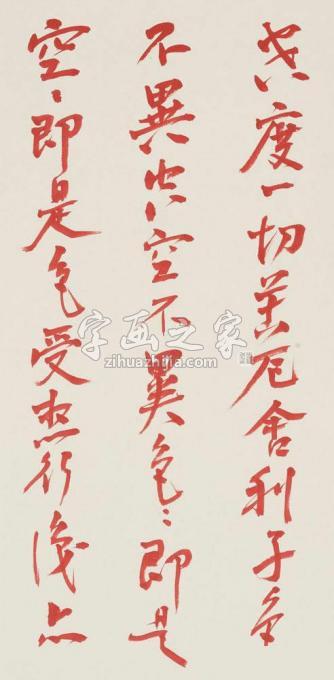 空度一切苦厄舍利子色
不異空空不異色々即是
空々即是色受想行識亦
字画之家
zihuazhijia.com